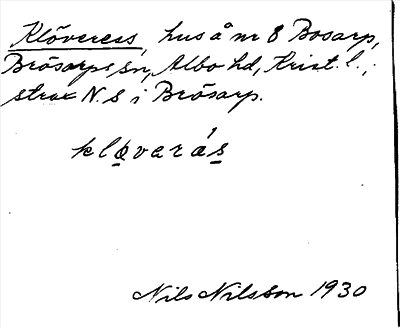 Klöveress, hus å nr 8 Bosarp,
Brösarps sn, Albo hd, Krist. l.;
strax N. 8 i Brösarp.
klo̲vará̲s̲
Nils Nilsson 1930